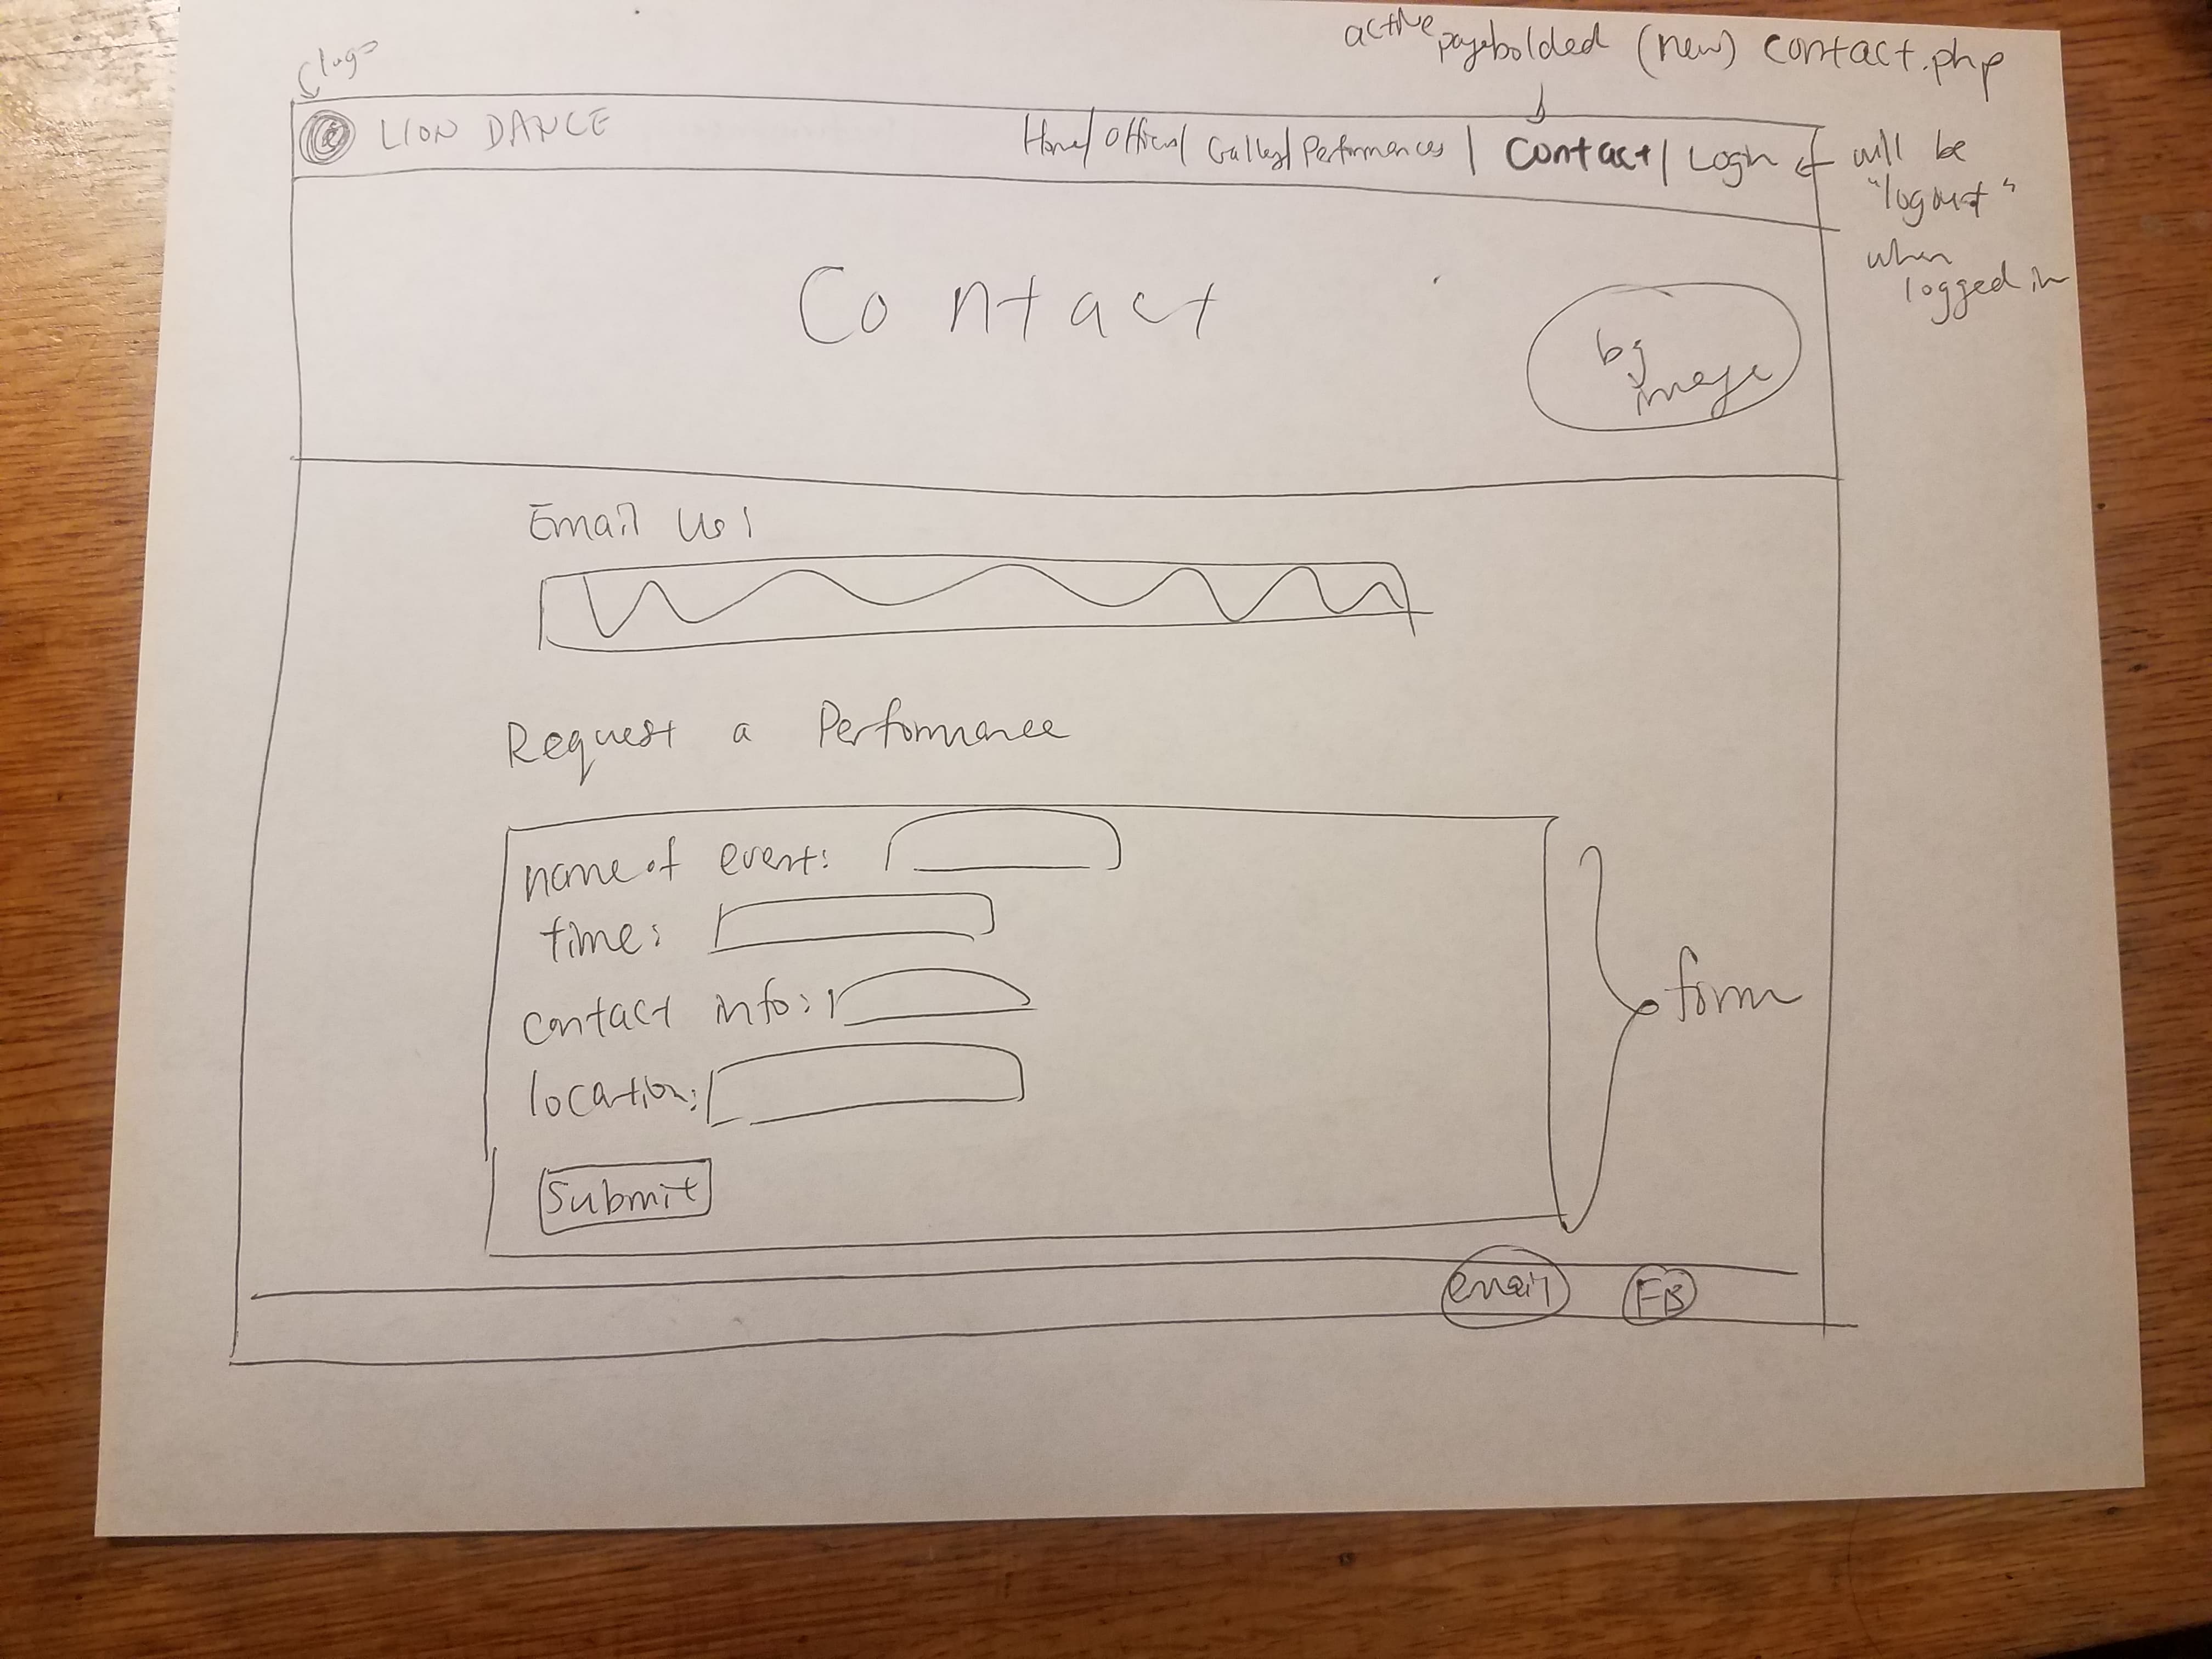 logo
active page bolded (new) contact.php
LION DANCE
Home / Officers / Gallery / Performances | Contact | Login
will be
"logout"
when
logged in
Contact
bg
image
Email Us!
Request a Performance
name of event:
time:
contact info:
location:
form
Submit
email FB